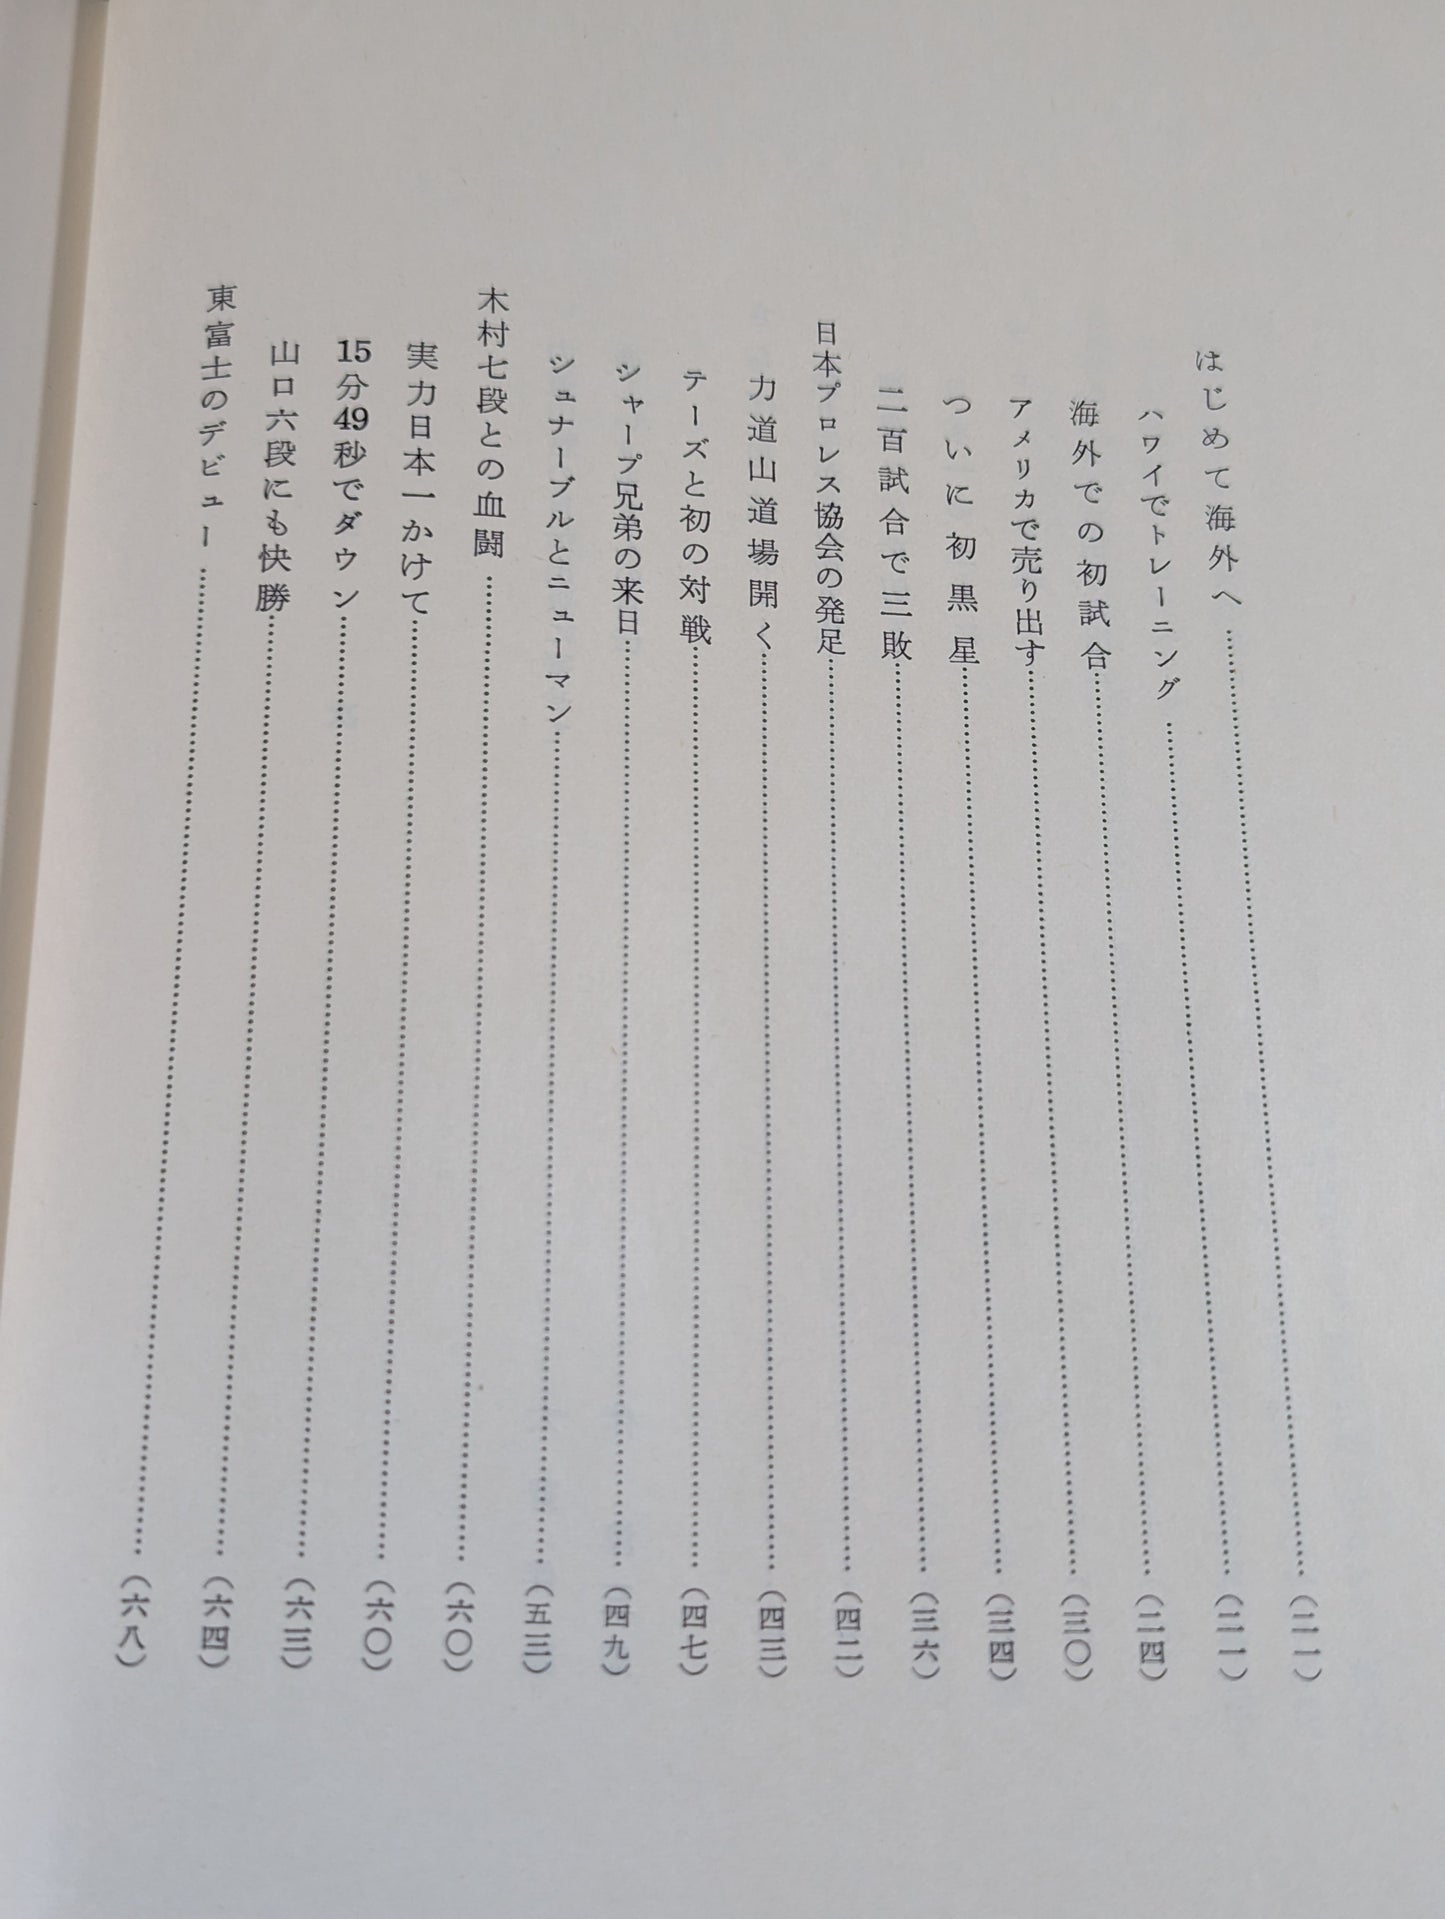 はじめて海外へ……(二一)
ハワイでトレーニング……(二一)
海外での初試合……(二四)
アメリカで売り出す……(三〇)
ついに初黒星……(三四)
二百試合で三敗……(三六)
日本プロレス協会の発足……(四二)
力道山道場開く……(四三)
テーズと初の対戦……(四七)
シャープ兄弟の来日……(四九)
シュナーブルとニューマン……(五三)
木村七段との血闘……(六〇)
実力日本一かけて……(六〇)
15分49秒でダウン……(六三)
山口六段にも快勝……(六四)
東富士のデビュー……(六八)